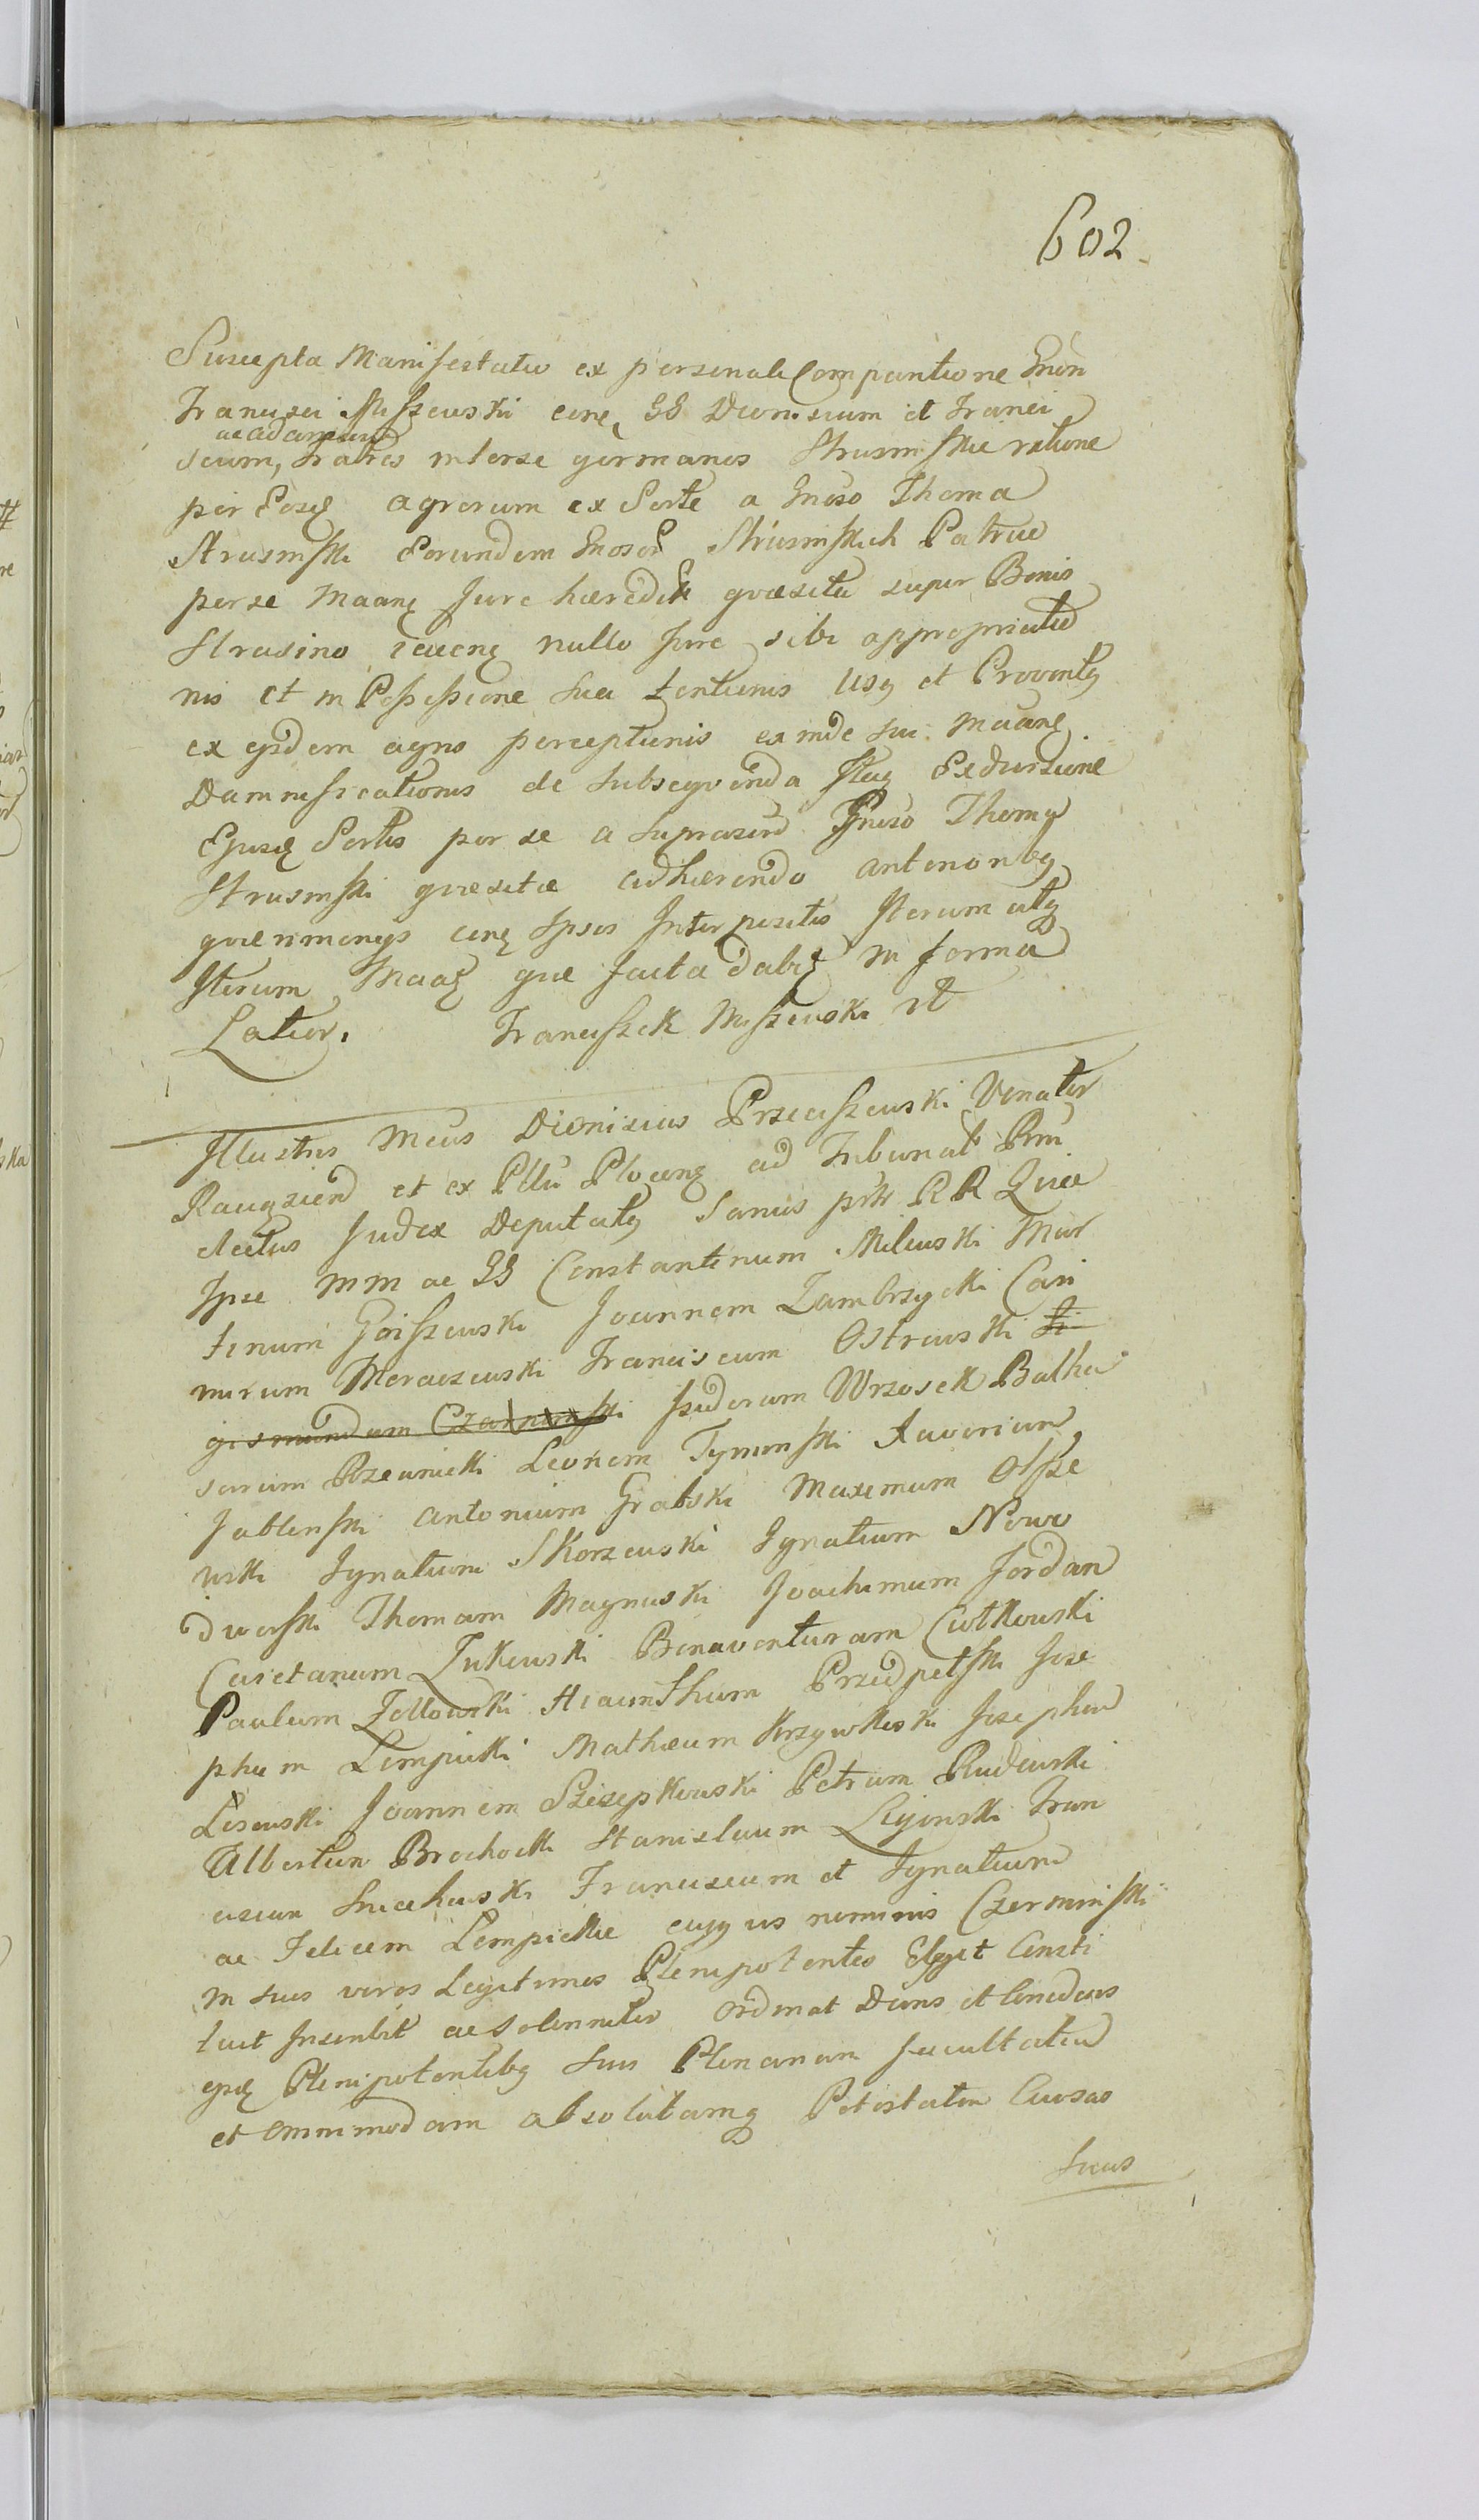 602
Suscepta Manifestatio ex personali Comparitione Gnōn
Francisci Miszewski coñe GG Dionisium et Franci
ac adamum
scum, Fratres interse germanos Strusinskie ratione
per Eosd agrorum ex Sorte a Gnoso Thoma
Strusinski Eorundem Gnosor Strusinskich Patruo
per se Maane Jure haeredit quaesita super Bonis
Strusino nullo Jure sibi appropriatio
nis et in Possessione sua tentionis Usq et Proventq
ex ejsdem agris perceptionis exinde sui Maane
Damnificationis de subsequenda Excursione
Ejusd Sortis per se a suprascrd Gnoso Thoma
Strusinski quaesitae adhaerendo anterioribq
quaerimonys cone Ipsos Interpositis Iterum atq
Iterum Maaz quae facta dabit in forma
Latior. Franciszek Miszewski rt
Illustris Mcus Dionisius Przeciszewski Venator
Raciązien et ex Pltu Plocen ad Tribunal Rni
electus Judex Deputatq Sanus RR Quia
Ipse MM ac GG Constantinum Milewski Mar
tinum Goiszewski Joannem Zambrzycki Casi
mirum Meraczewski Franciscum Ostrowski Si
gismundum Czarninski Isidorum Wrzosek Baltha
sarum Rzeanicki Leonem Tyminski Xaverium
Jablonski antonium Grabski Maximum Olsze
wski Ignatium Skorzewski Ignatium Nowo
dworski Thomam Magnuski Joachimum Jordan
Caietanum Zukowski Bonaventuram Ciotkowski
Paulum Zellowski Hiacinthum Przedpełski Jose
phum Lempicki Mathaeum Krzywkoski Josephum
Lisowski Joannem Szczepkowski Petrum Rudowski
Albertum Brochocki Stanislaum Lyinski Fran
ciscum Sniechowski Franciscum et Ignatium
ac Felicem Lempickie cujqvis nominis Czerminski
in suos veros Legitimos Plenipotentes Elegit Consti
tuit Inscribit ac solenniter ordinat Dans et Concedens
ejsd Plenipotentibq suis Plenariam facultatem
et omnimodam absolutamq Potestatem Causas
suas